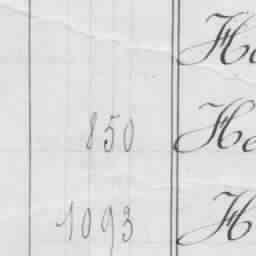 He
850 He
1093 H